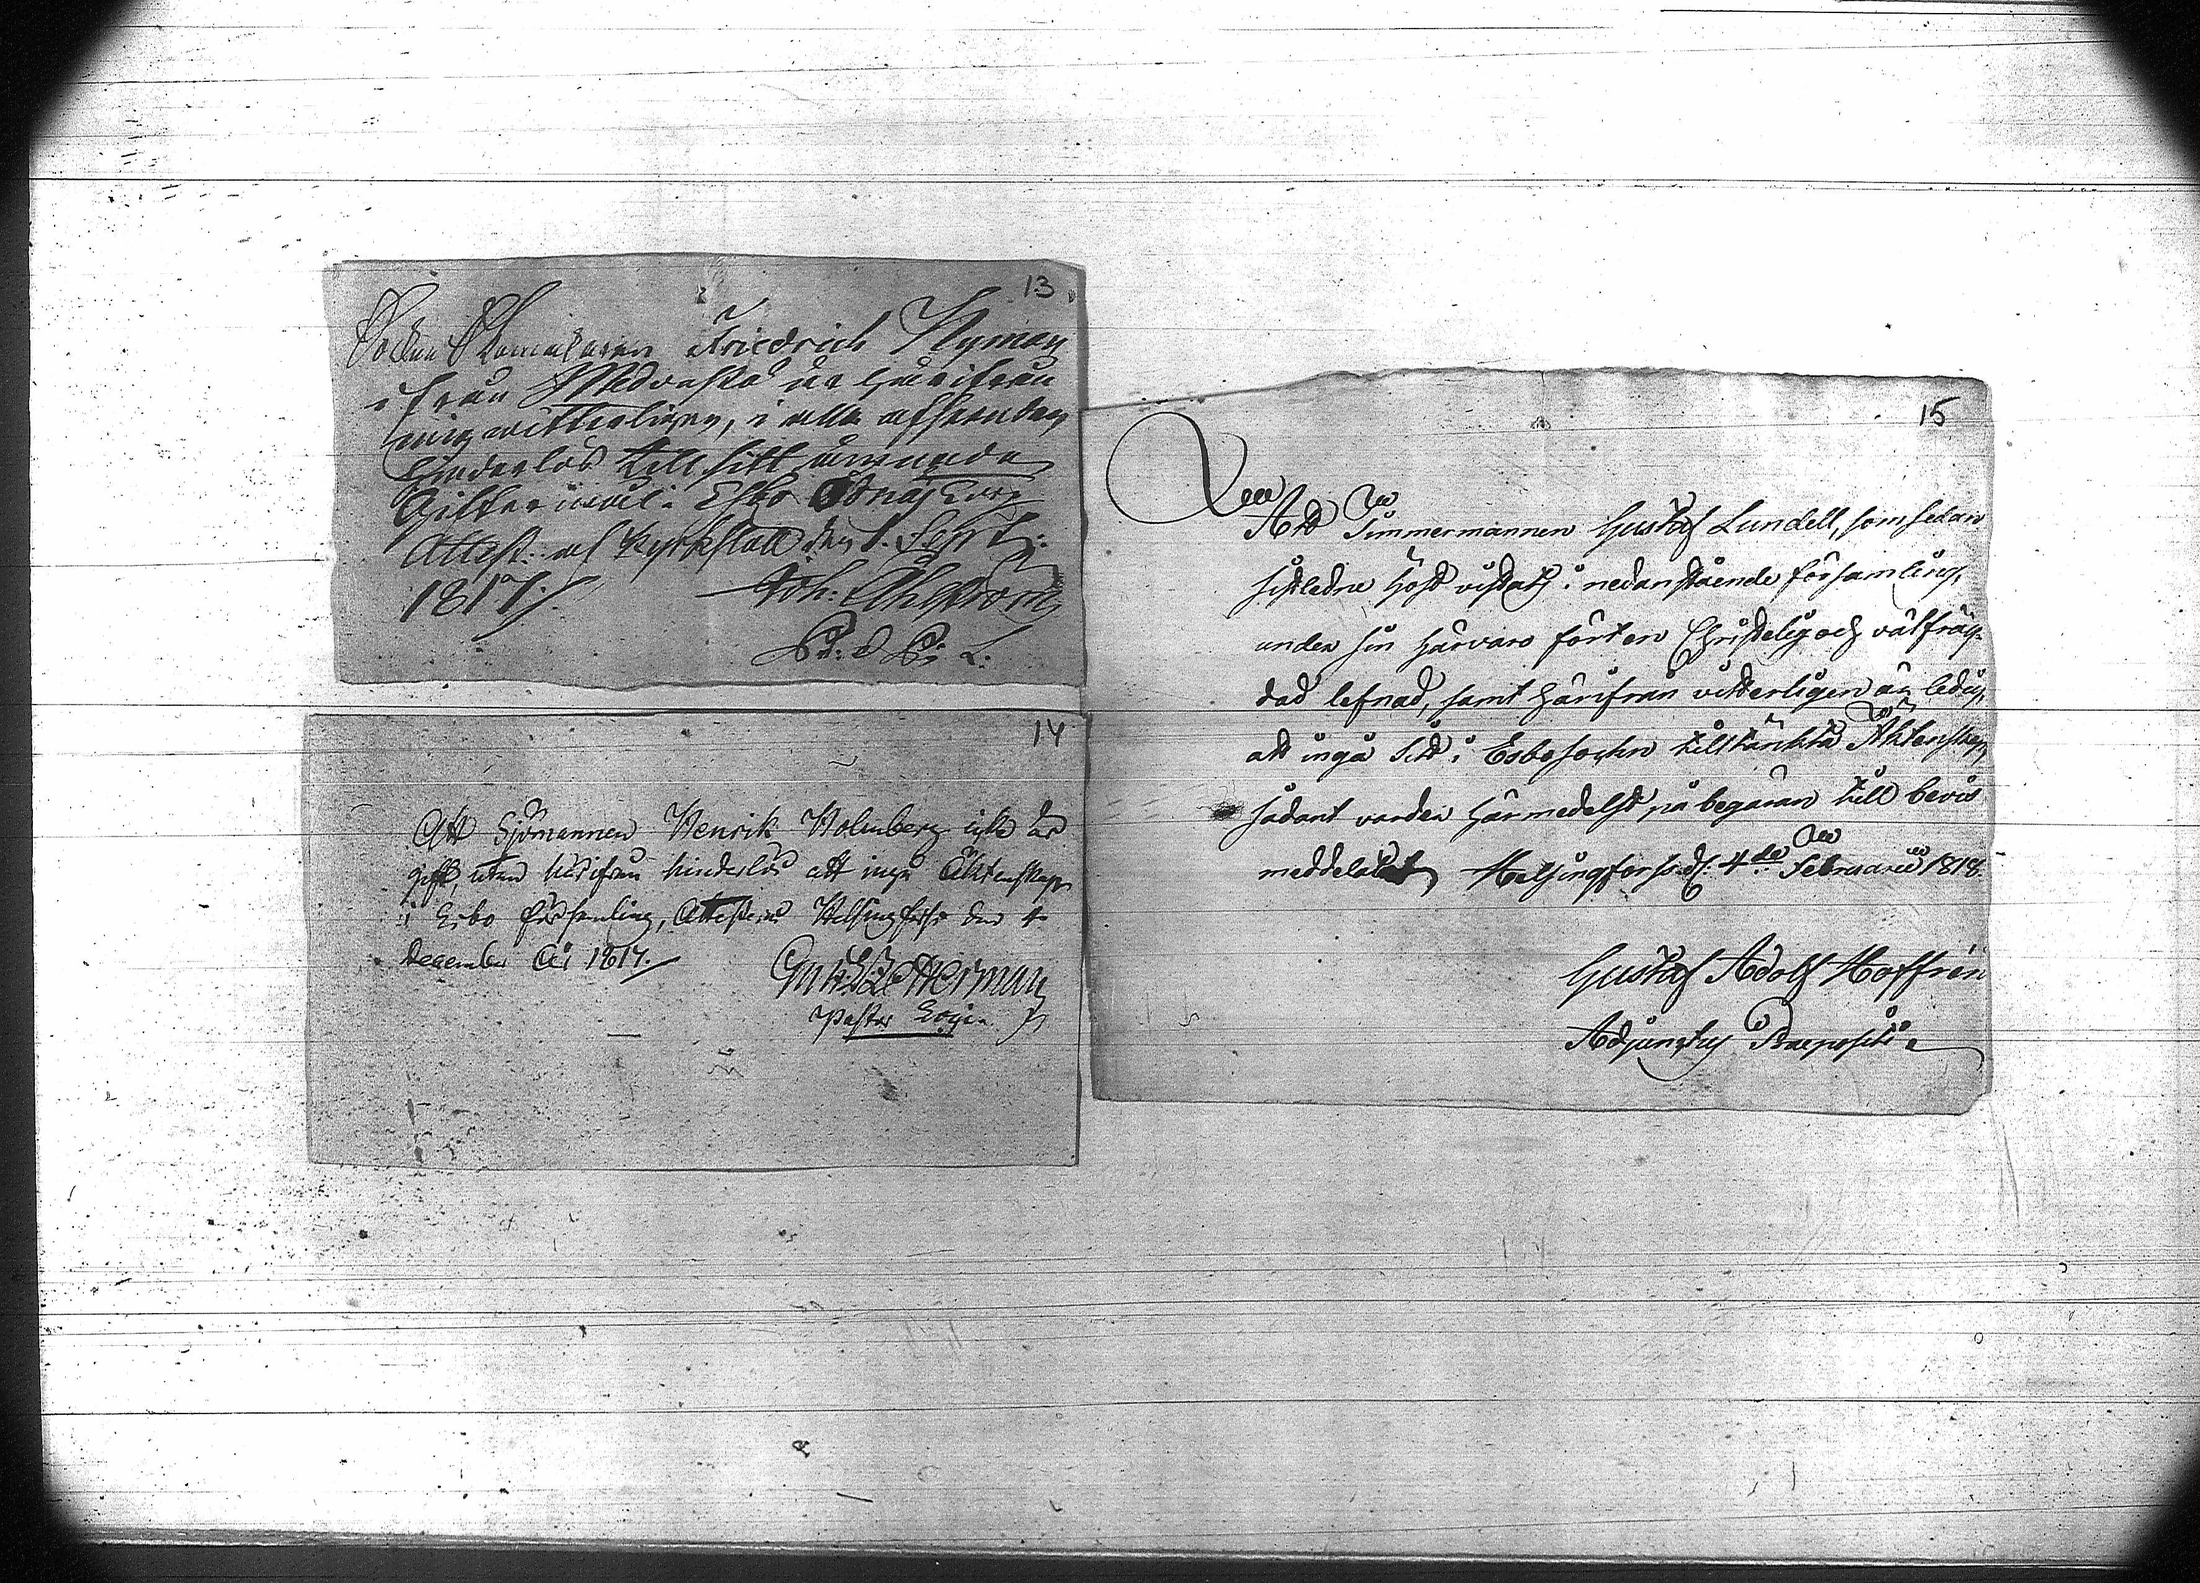 13
Sockne Skomakaren Friedrich Nyman
ifrån Medvasta är härifrån
mig witterligen, i alla afseenden
hinderlös till sitt ärnade
Giftermål i Esbo
Attest: af Kyrkstall den 1. Sept:
1817.
Joh: Ahlstrom
14
Att Sjömannen Henrik Holmberg icke är
gift, utan härifrån hinderlös att ingå Äktenskap
i Esbo församling, Attesteras Helsingfors den 4
December År 1817.
Pastor
15
Att Timmermannen Gustaf Lundell, som sedan
sistledne höst vistats i nedanstående församling,
under sin härvaro fört en Christelig och välfräg-
dad lefnad, samt härifrån vitterligen är ledig,
att ingå sitt i Esbo sochn tilltänkta Äktenskap,
sådant varder härmedelst på begäran till bevis
meddelat, Helsingfors d. 4de Februarii 1818.
Gustaf Adolf Hoffrén
Adjunctus Praepositi.